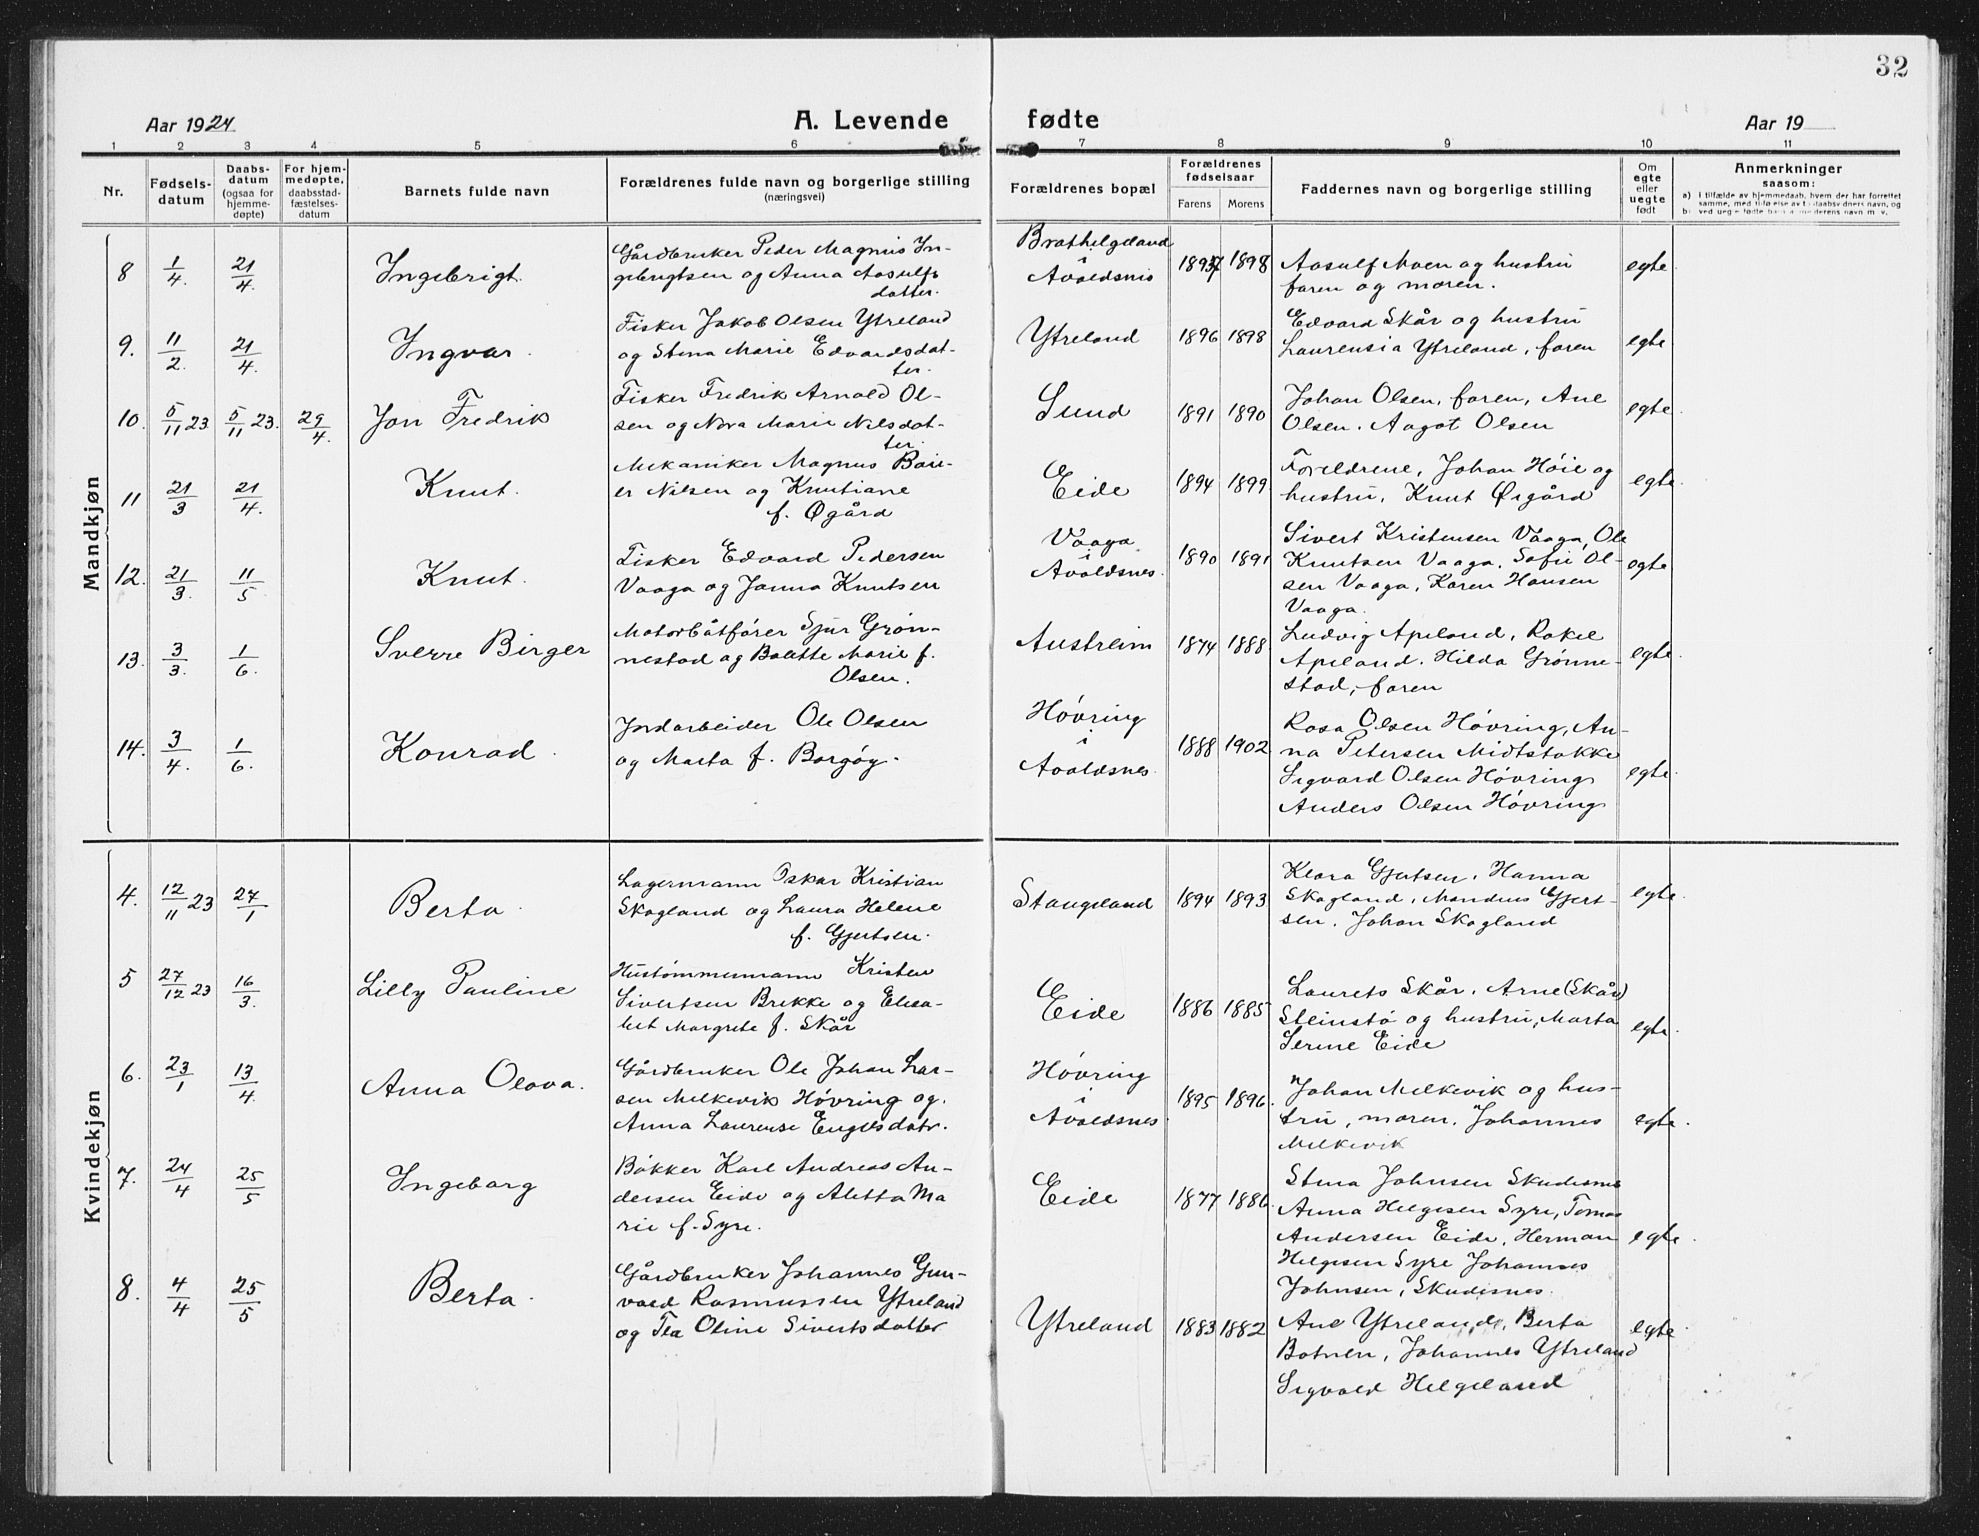 32
Aar 1924
A. Levende
fødte
Aar 19
1 2 3 4 5 6 7 8 9 10 11
Nr.
Fødsels-
datum
Daabs-
datum
(ogsaa for
hjemme-
døpte)
For hjem-
medøpte,
daabsstad-
fæstelses-
datum
Barnets fulde navn
Forældrenes fulde navn og borgerlige stilling
(næringsvei)
Forældrenes bopæl
Forældrenes
fødselsaar
Farens Morens
Faddernes navn og borgerlige stilling
Om
egte
eller
uegte
født
Anmerkninger
saasom:
a) i tilfælde av hjemmedaab, hvem der har forrettet
samme, med tilføielse av to daabsvidners navn, og
b) ved uegte fødte barn
Mandkjøn
8 1/4. 21/4. Ingebrigt.
Gårdbruker Peder Magnus In-
gebrigtsen og Anna Aasulfs
datter.
Brathelgeland
i
Avaldsnes
1897 1898
Aasulf Moen og hustru
faren og moren.
egte
9. 11/2. 21/4. Ingvar.
Fisker Jakob Olsen Ytreland
og Stena Marie Edvardsdat-
ter.
Ytreland
1896 1898
Edvard Skår og hustru
Laurensia Ytreland, faren
egte
10. 5/11 23 5/11 23. 29/4. Jon Fredrik
Fisker Fredrik Arnold Ol-
sen og Nora Marie Nilsdat-
ter.
Sund
1891 1890
Johan Olsen, faren, Ane
Olsen. Aagot Olsen
egte
11 21/3 21/4. Knut.
Mekaniker Magnus Bari-
er Nilsen og Knutiane
f. Øgård
Eide
1894 1899
Foreldrene, Johan Höie og
hustru, Knut Øygård
egte.
12. 21/3. 11/5 Knut.
Fisker Edvard Pedersen
Vaaga og Janna Knutsen
Vaaga
i
Avaldsnes.
1890 1891
Sivert Kristensen Vaaga, Ole
Knutsen Vaaga, Sofie Ol-
sen Vaaga, Karen Hansen
Vaaga.
egte
13. 3/3. 1/6. Sverre Birger
Motorbåtfører Sjur Grøn-
nestad og Balette Marie f.
Olsen.
Austreim
1874 1888
Ludvig Apeland, Rakel
Apeland. Hilda Grønne-
stad, faren
egte.
14. 3/4. 1/6. Konrad.
Jordarbeider Ole Olsen
og Marta f. Borgøy.
Høvring
i
Avaldsnes.
1888 1902
Rosa Olsen Høvring, An-
na Petersen Midtstokke
Sigvard Olsen Høvring
Anders Olsen Høvring
egte.
Kvindekjøn
4. 12/11 23 27/1 Berta.
Lagermann Oskar Kristian
Skogland og Laura Helene
f. Gjertsen.
Stangeland
1894 1893
Klara Gjertsen, Hanna
Skogland, Mandius Gjert-
sen, Johan Skogland
egte.
5 27/12 23 16/3. Lilly Pauline
Hustømmermann Kristen
Sivertsen Brekke og Elisa-
bet Margrete f. Skår
Eide
1886 1885
Laurets Skår. Arne (Skår)
Steinstø og hustru, Marta
Serine Eide
egte
6. 23/1 13/4. Anna Olava.
Gårdbruker Ole Johan Lar-
sen Melkevik Høvring og
Anna Laurense Engelsdatr.
Høvring
i
Avaldsnes.
1895 1896.
Johan Melkevik og hus-
tru, moren, Johannes
Melkevik
egte.
7. 24/4 25/5 Ingeborg
Bøkker Karl Andreas An-
dersen Eide og Aletta Ma
rie f. Syre.
Eide
1877 1886
Stina Johnsen Skudesnes
Anna Helgesen Syre, Tomas
Andersen Eide, Herman
Helgesen Syre Johannes
Johnsen, Skudesnes.
egte.
8. 4/4 25/5 Berta.
Gårdbruker Johannes Gun-
vald Rasmussen Ytreland
og Tea Oline Sivertsdatter
Ytreland
1883 1882
Ane Ytreland, Berta
Botnen, Johannes Ytreland
Sigvald Helgeland
egte.